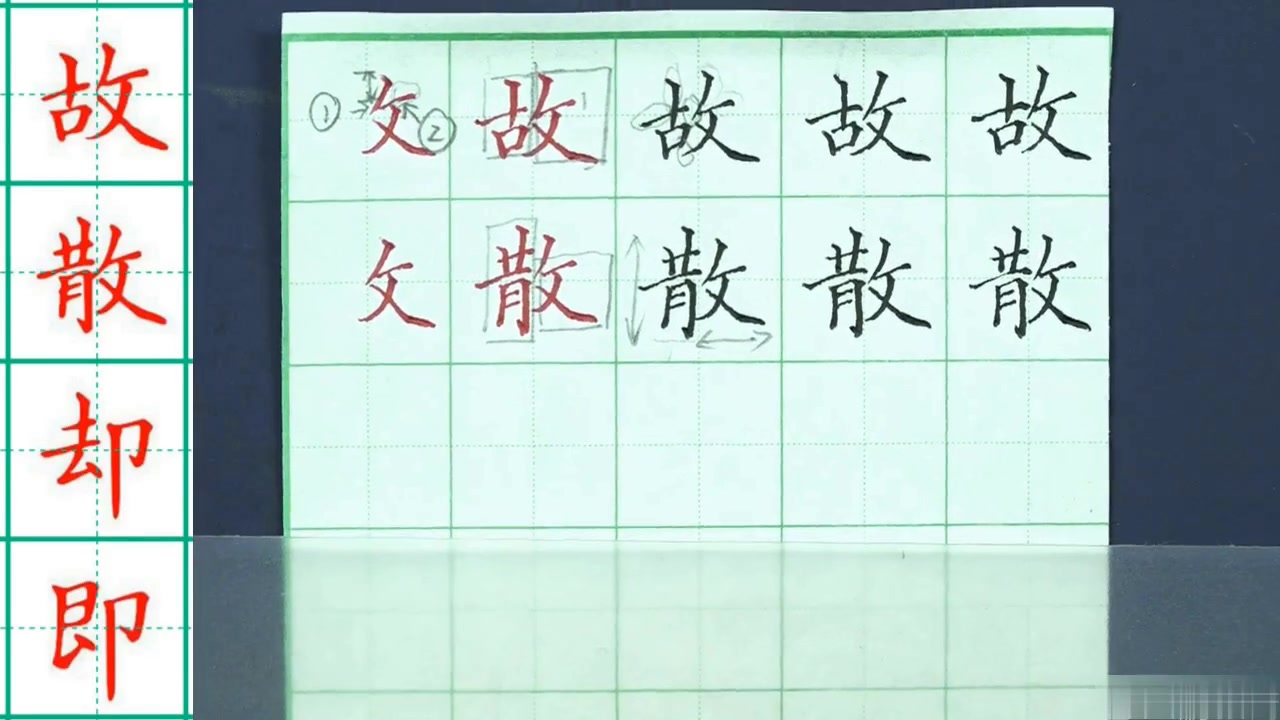 故
散
却
即
① 攵 ② 故 故 故 故
攵 散 散 散 散